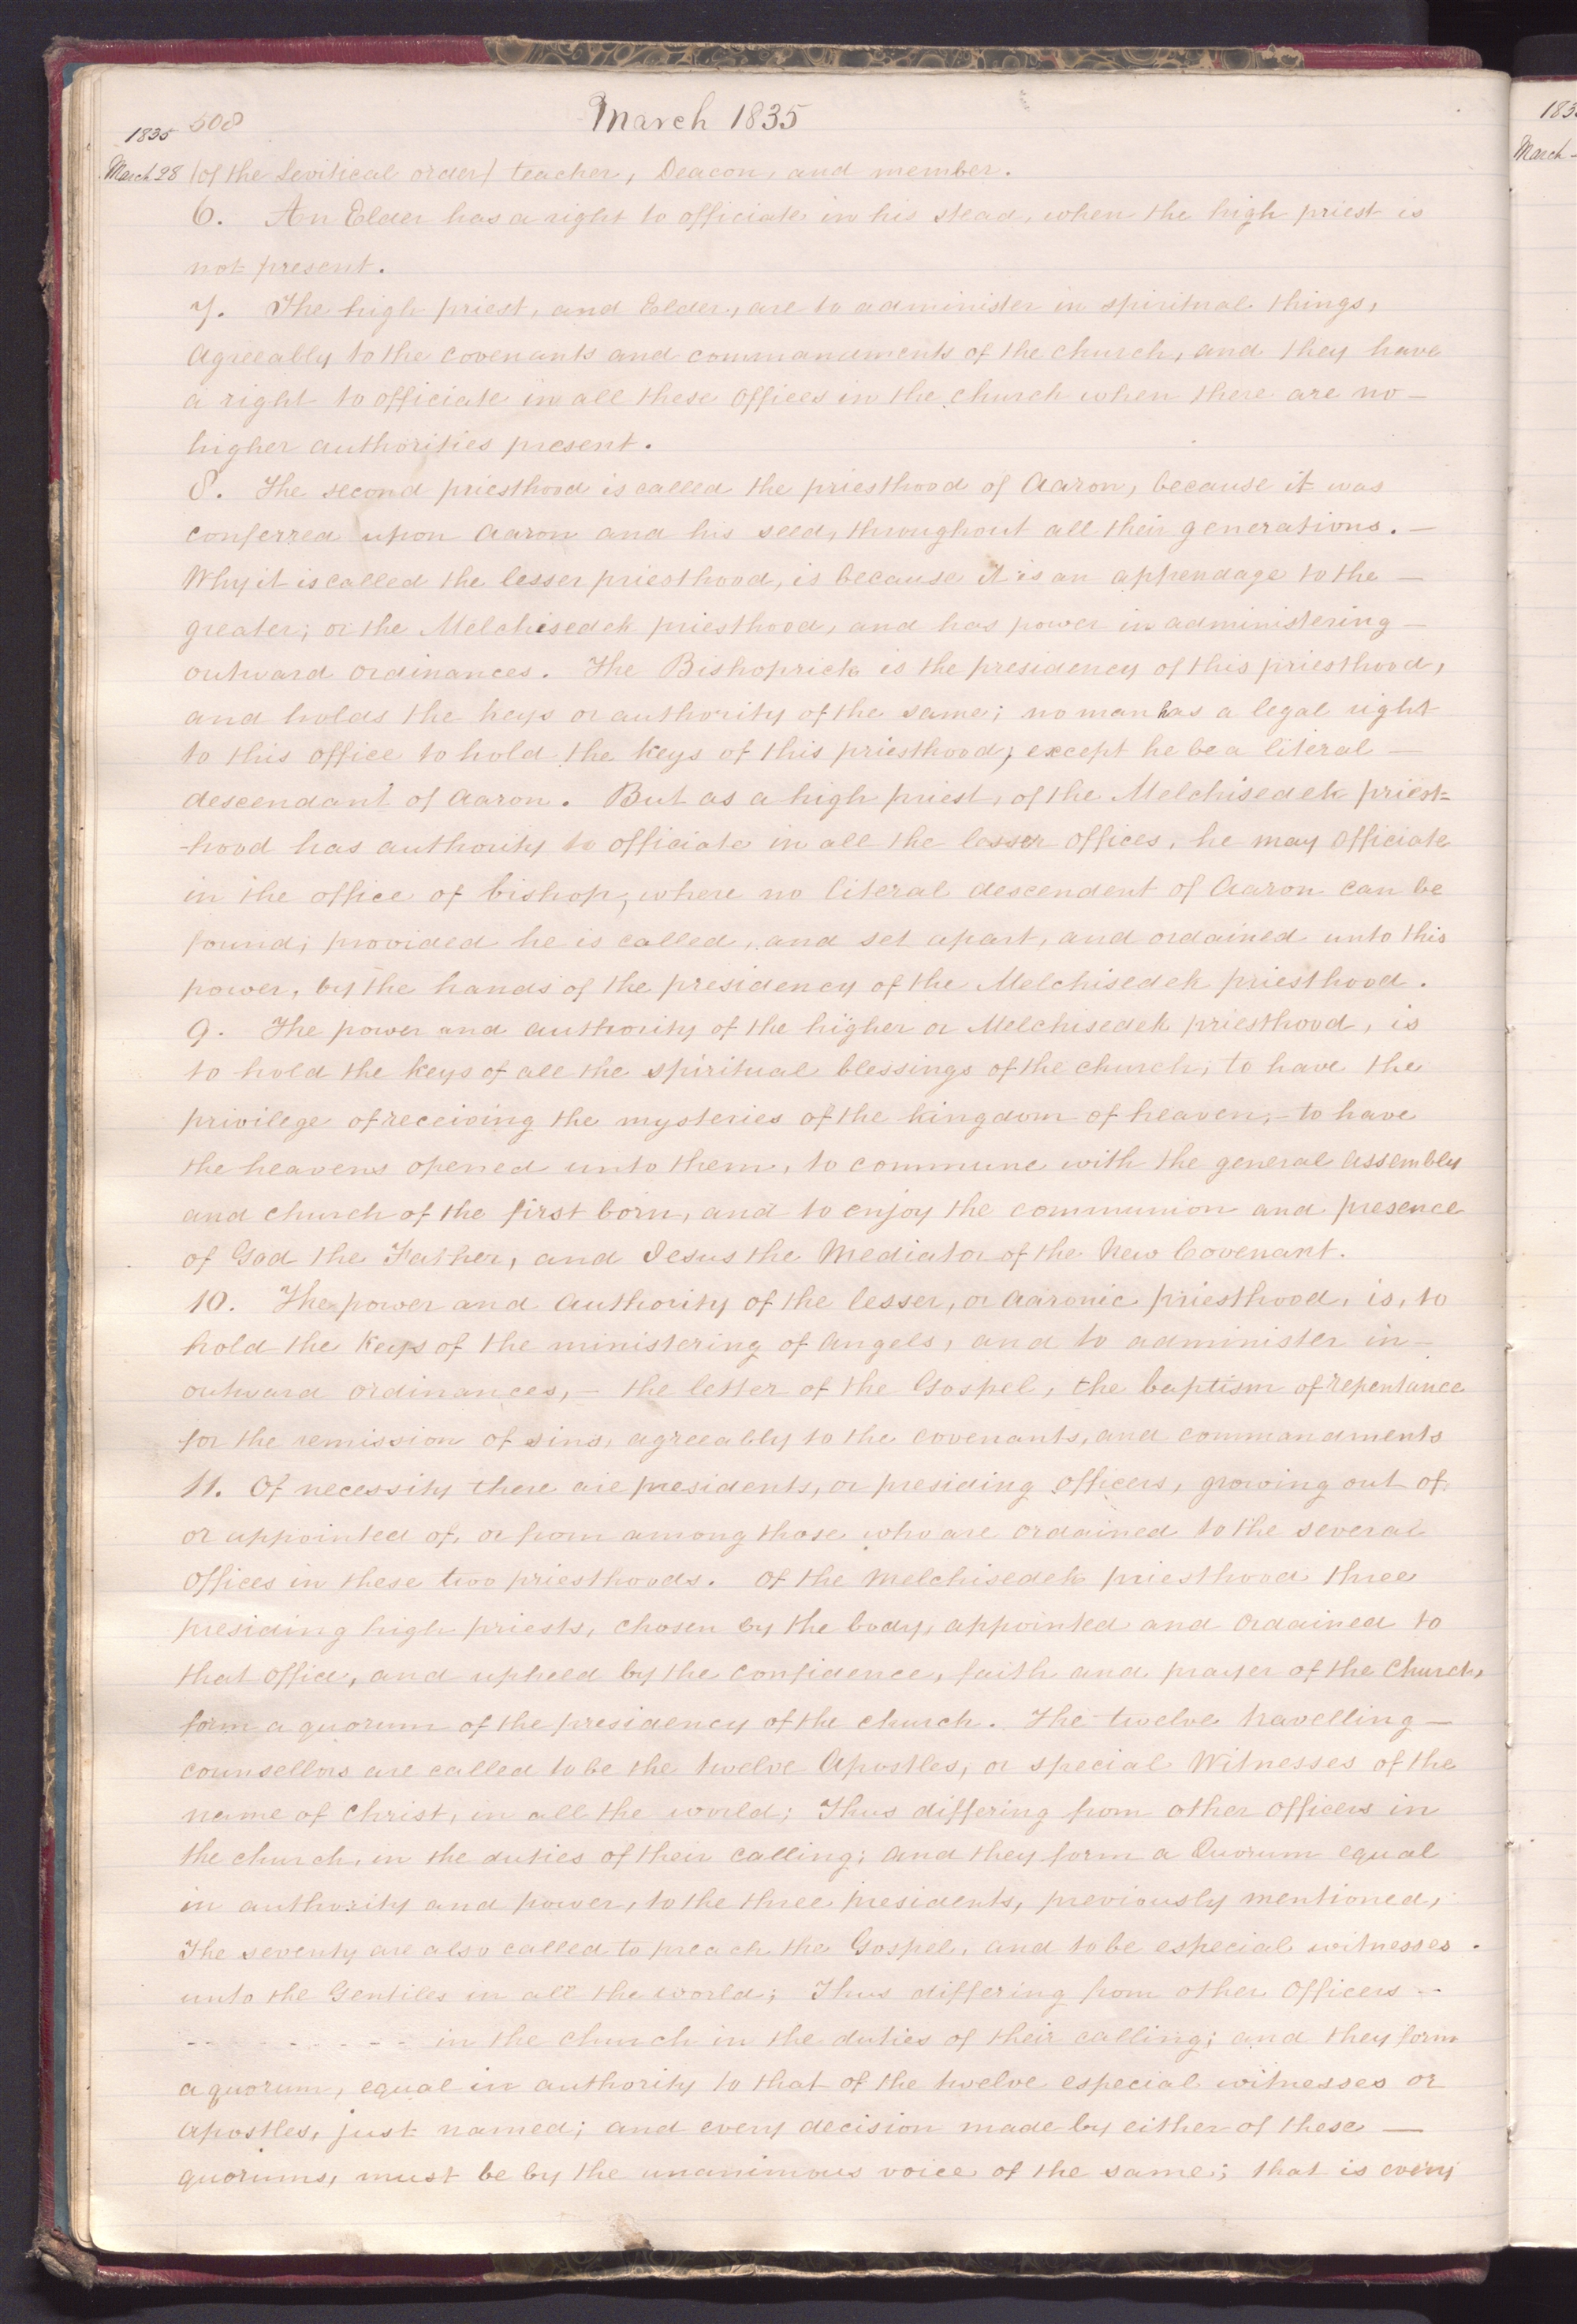 March 1835
1835 508
March 28 (of the Levitical order) teacher, Deacon, and member.
6. An Elder has a right to officiate in his stead, when the high priest is
not present.
7. The high priest, and Elder, are to administer in spiritual things,
agreeably to the covenants and commandments of the church, and they have
a right to officiate in all these offices in the church when there are no —
higher authorities present.
8. The second priesthood is called the priesthood of Aaron, because it was
conferred upon Aaron and his seed, throughout all their generations. —
Why it is called the lesser priesthood, is because it is an appendage to the —
greater; or the Melchisedek priesthood, and has power in administering —
outward ordinances. The Bishoprick is the presidency of this priesthood,
and holds the keys or authority of the same; no man has a legal right
to this office to hold the keys of this priesthood; except he be a literal —
descendant of Aaron. But as a high priest, of the Melchisedek priest-
-hood has authority to officiate in all the lesser offices, he may officiate
in the office of bishop, where no literal descendent of Aaron can be
found; provided he is called, and set apart, and ordained unto this
power, by the hands of the presidency of the Melchisedek priesthood.
9. The power and authority of the higher or Melchisedek priesthood, is
to hold the keys of all the spiritual blessings of the church; to have the
privilege of receiving the mysteries of the kingdom of heaven, — to have
the heavens opened unto them, to commune with the general assembly
and church of the first born, and to enjoy the communion and presence
of God the Father, and Jesus the Mediator of the New Covenant.
10. The power and authority of the lesser, or Aaronic priesthood, is, to
hold the keys of the ministering of angels, and to administer in —
outward ordinances, — the letter of the Gospel, the baptism of repentance
for the remission of sins, agreeably to the covenants, and commandments
11. Of necessity there are presidents, or presiding officers, growing out of
or appointed of, or from among those who are ordained to the several
offices in these two priesthoods. Of the Melchisedek priesthood three
presiding high priests, chosen by the body, appointed and ordained to
that office, and upheld by the confidence, faith and prayer of the Church,
form a quorum of the presidency of the church. The twelve travelling —
counsellors are called to be the twelve Apostles, or special Witnesses of the
name of Christ, in all the world; Thus differing from other officers in
the church, in the duties of their calling; and they form a Quorum equal
in authority and power, to the three presidents, previously mentioned,
The seventy are also called to preach the Gospel, and to be especial witnesses.
unto the Gentiles in all the world; Thus differing from other Officers --
- - - - - - - - in the church in the duties of their calling; and they form
a quorum, equal in authority to that of the twelve especial witnesses or
apostles, just named; and every decision made by either of these —
quorums, must be by the unanimous voice of the same; that is every
183
March -